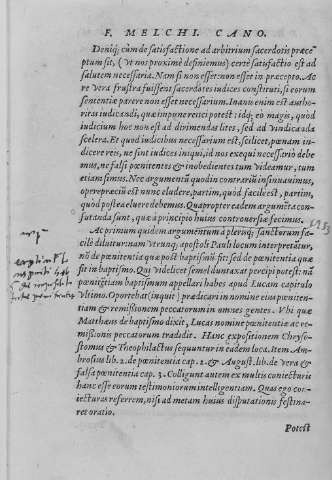 F. MELCHI. CANO.
Deniq; cùm de satisfactione ad arbitrium sacerdotis præce
ptum sit, (vt nos proximè definiemus) certè satisfactio est ad
salutem necessaria. Nam si non esset: non esset in præcepto. Ac
re vera frustra fuissent sacerdotes iudices constituti, si eorum
sententiæ parere non esset necessarium. Inanis enim est autho-
ritas iudicandi, quæ impune reijci potest: idq; eo magis, quod
iudicium hoc non est ad dirimendas lites, sed ad vindicanda
scelera. Et quod iudicibus necessum est, scilicet, pœnam in-
dicere reis, ne sint iudices iniqui, id nos exequi necessariò debe
mus, ne falsi pœnitentes & inobedientes tum videamur, tum
etiam simus. Nec argumentũ quod in contrariũ insinuauimus,
operæprecium est nunc eludere, partim, quod facile est, partim,
quòd postea eluere debemus. Quapropter eadem argumẽta con-
futanda sunt, quæ à principio huius controuersiæ fecimus.
Ac primum quidem argumentum à plerisq; sanctorum fa-
cilè diluitur: nam vtrunq; apostoli Pauli locum interpretãtur,
nõ de pœnitentia quæ post baptismũ fit: sed de pœnitentia quæ
fit in baptismo. Qui videlicet semel duntaxat percipi potest: nã
pœnitẽtiam baptismum appellari habes apud Lucam capitulo
vltimo. Oportebat (inquit) prædicari in nomine eius pœniten-
tiam & remissionem peccatorum in omnes gentes. Vbi quæ
Matthæus de baptismo dixit, Lucas nomine pœnitentiæ ac re-
missionis peccatorum tradidit. Hanc expositionem Chryso-
stomus & Theophilactus sequuntur in eadem loca. Item. Am-
brosius lib. 2. de pœnitentia cap. 2. & August. lib. de vera &
falsa pœnitentia cap. 3. Colligunt autem ex multis coniecturis
hanc esse eorum testimoniorum intelligentiam. Quas ego con-
iecturas referrem, nisi ad metam huius disputationis festina-
ret oratio.
Potest